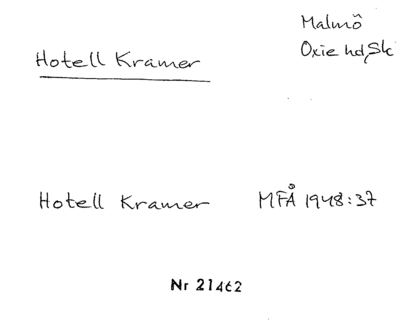 Malmö
Oxie hd, Sk
Hotell Kramer
Hotell Kramer MFÅ 1948:37
Nr 21462